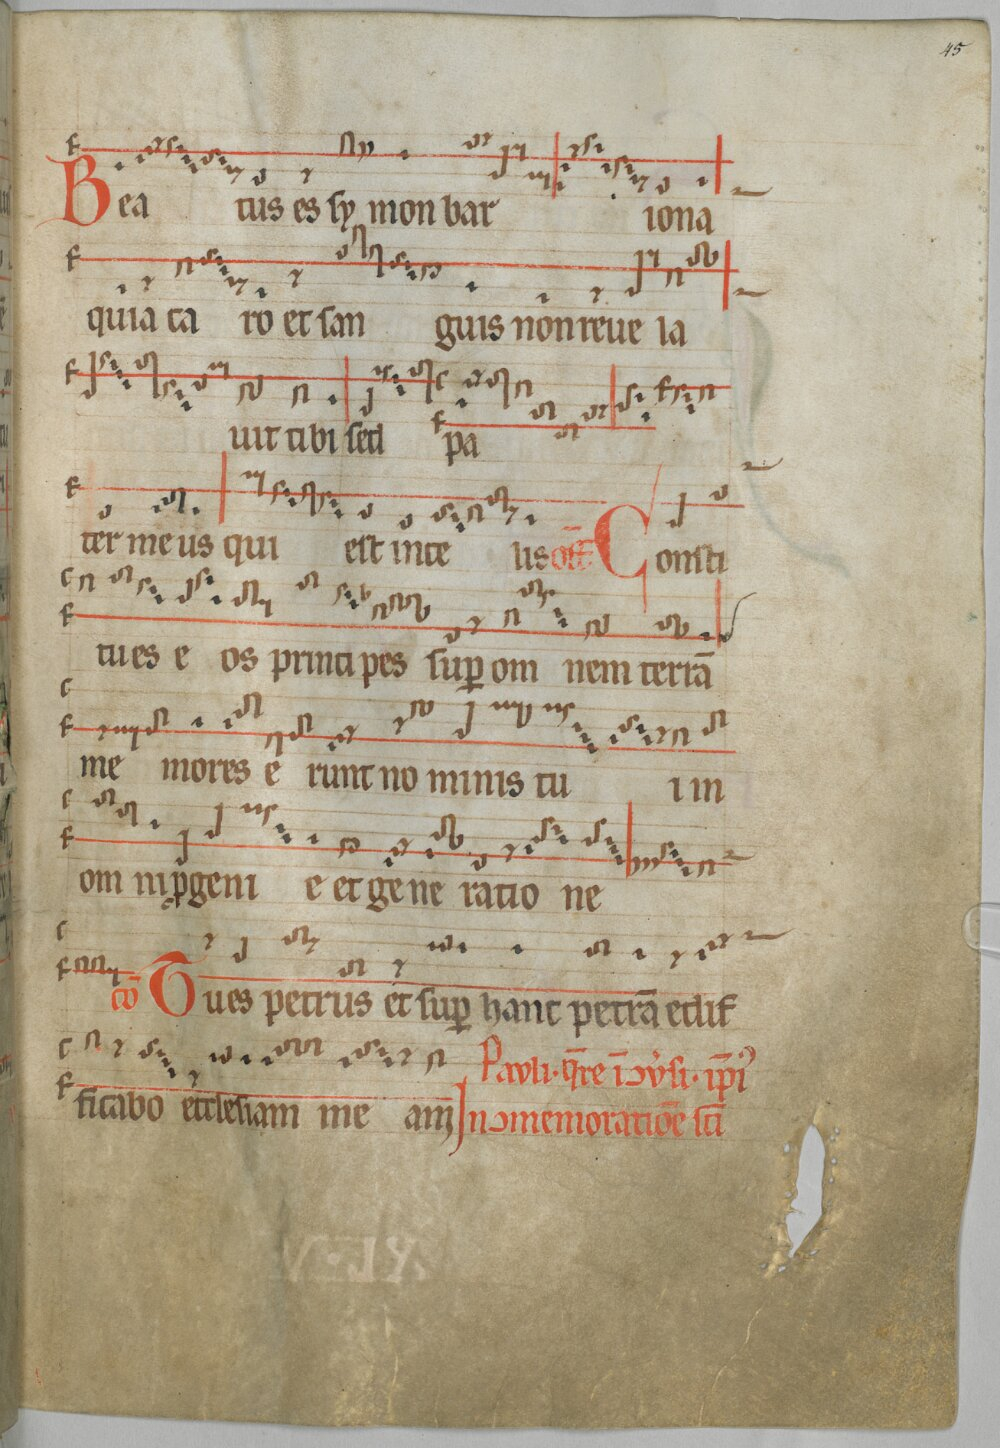 45
Bea tus es sy mon bar iona
quia ca ro et san guis non reue la
uit tibi sed pa
ter me us qui est in ce lis off Consti
tues e os princi pes sup om nem terrā
me mores e runt no minis tu i in
om ni pgeni e et ge ne ratio ne
cō Tu es petrus et sup hanc petrā edif
ficabo ecclesiam me am
Pauli·
In ɔmemoratiōe sci